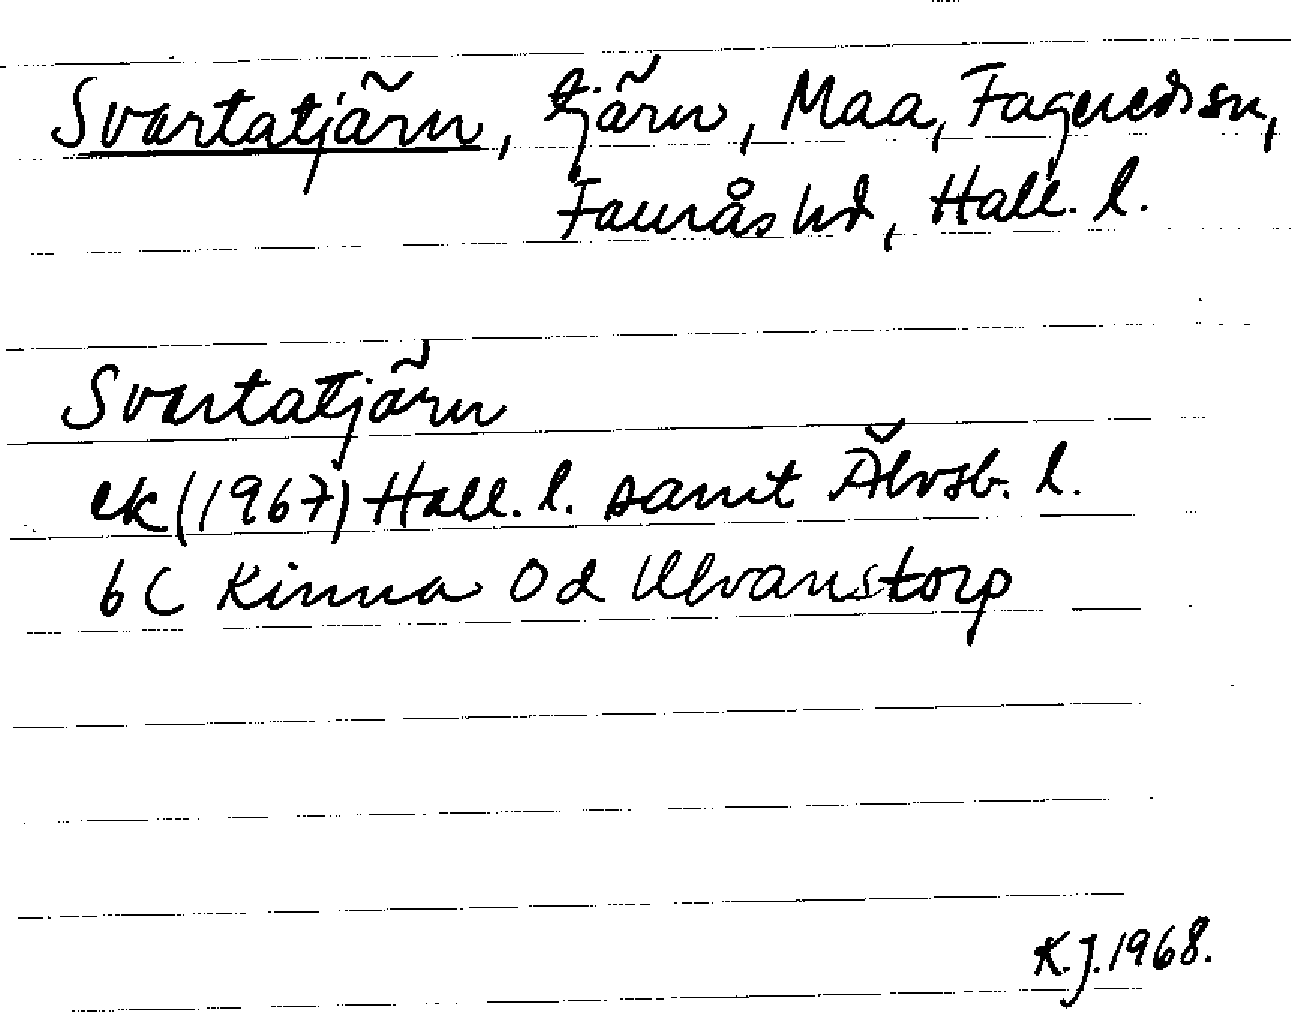 Svartatjärn, tjärn, Maa, Fagereds sn,
Faurås hd, Hall. l.
Svartatjärn
ek (1967) Hall. l. samt Älvsb. l.
6 C Kinna 0 d Ulvanstorp
K.J. 1968.